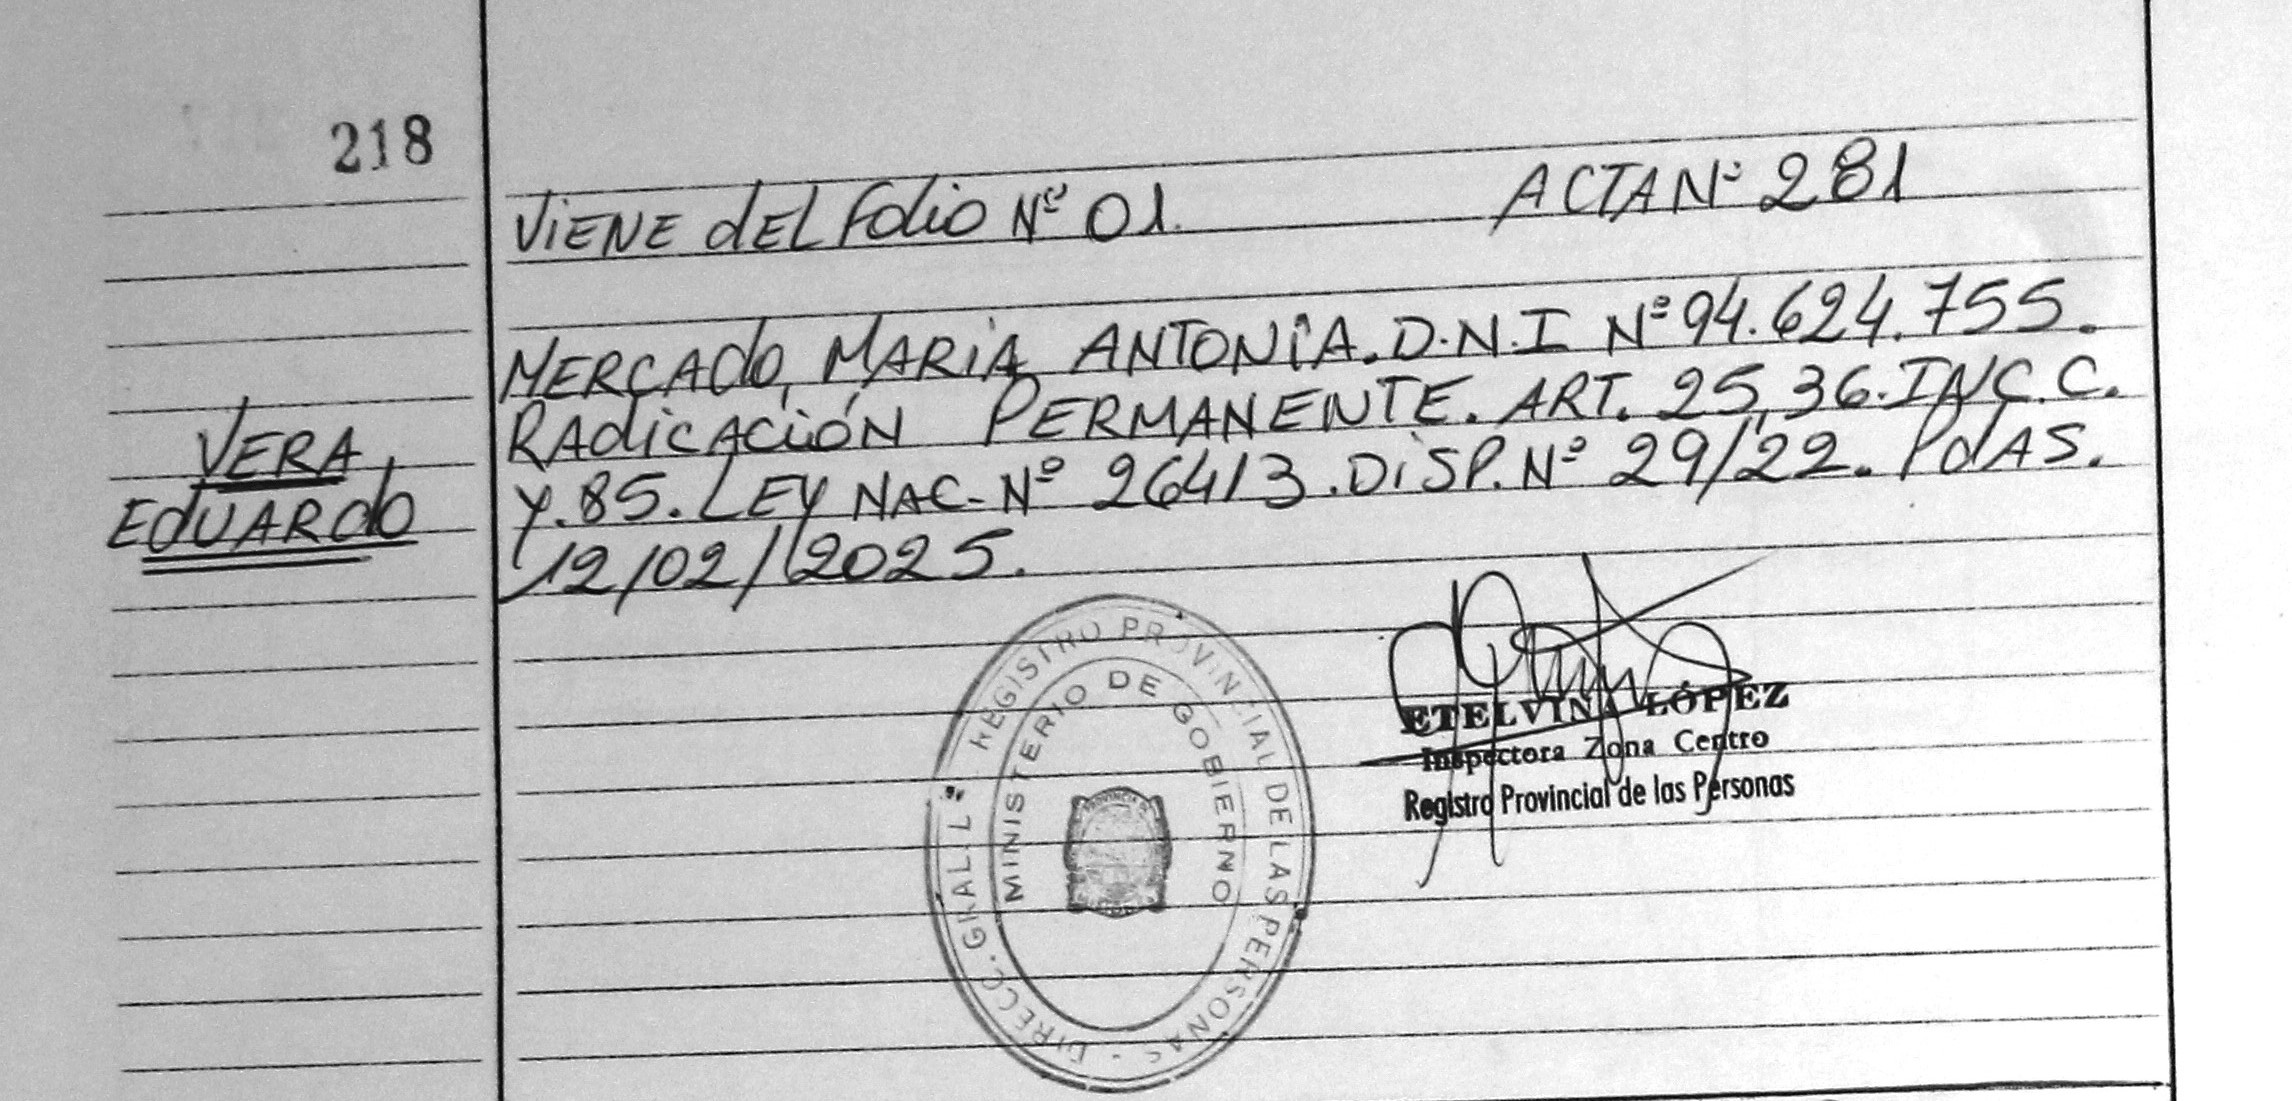 218
ViENE dEL Folio Nº 01. ACTA Nº 281
VERA,
EDUARdo
MERCAdo, MARIA ANTONIA. D.N.I Nº 94.624.755.
RAdicACióN PERMANENTE. ART. 25,36.INC.C.
Y.85. LEY NAC. Nº 26413. DiSP. Nº 29/22. PdAS.
12/02/2025.
DIRECC. GRAL. REGISTRO PROVINCIAL DE LAS PERSONAS
MINISTERIO DE GOBIERNO
ETELVINA LÓPEZ
Inspectora Zona Centro
Registro Provincial de las Personas